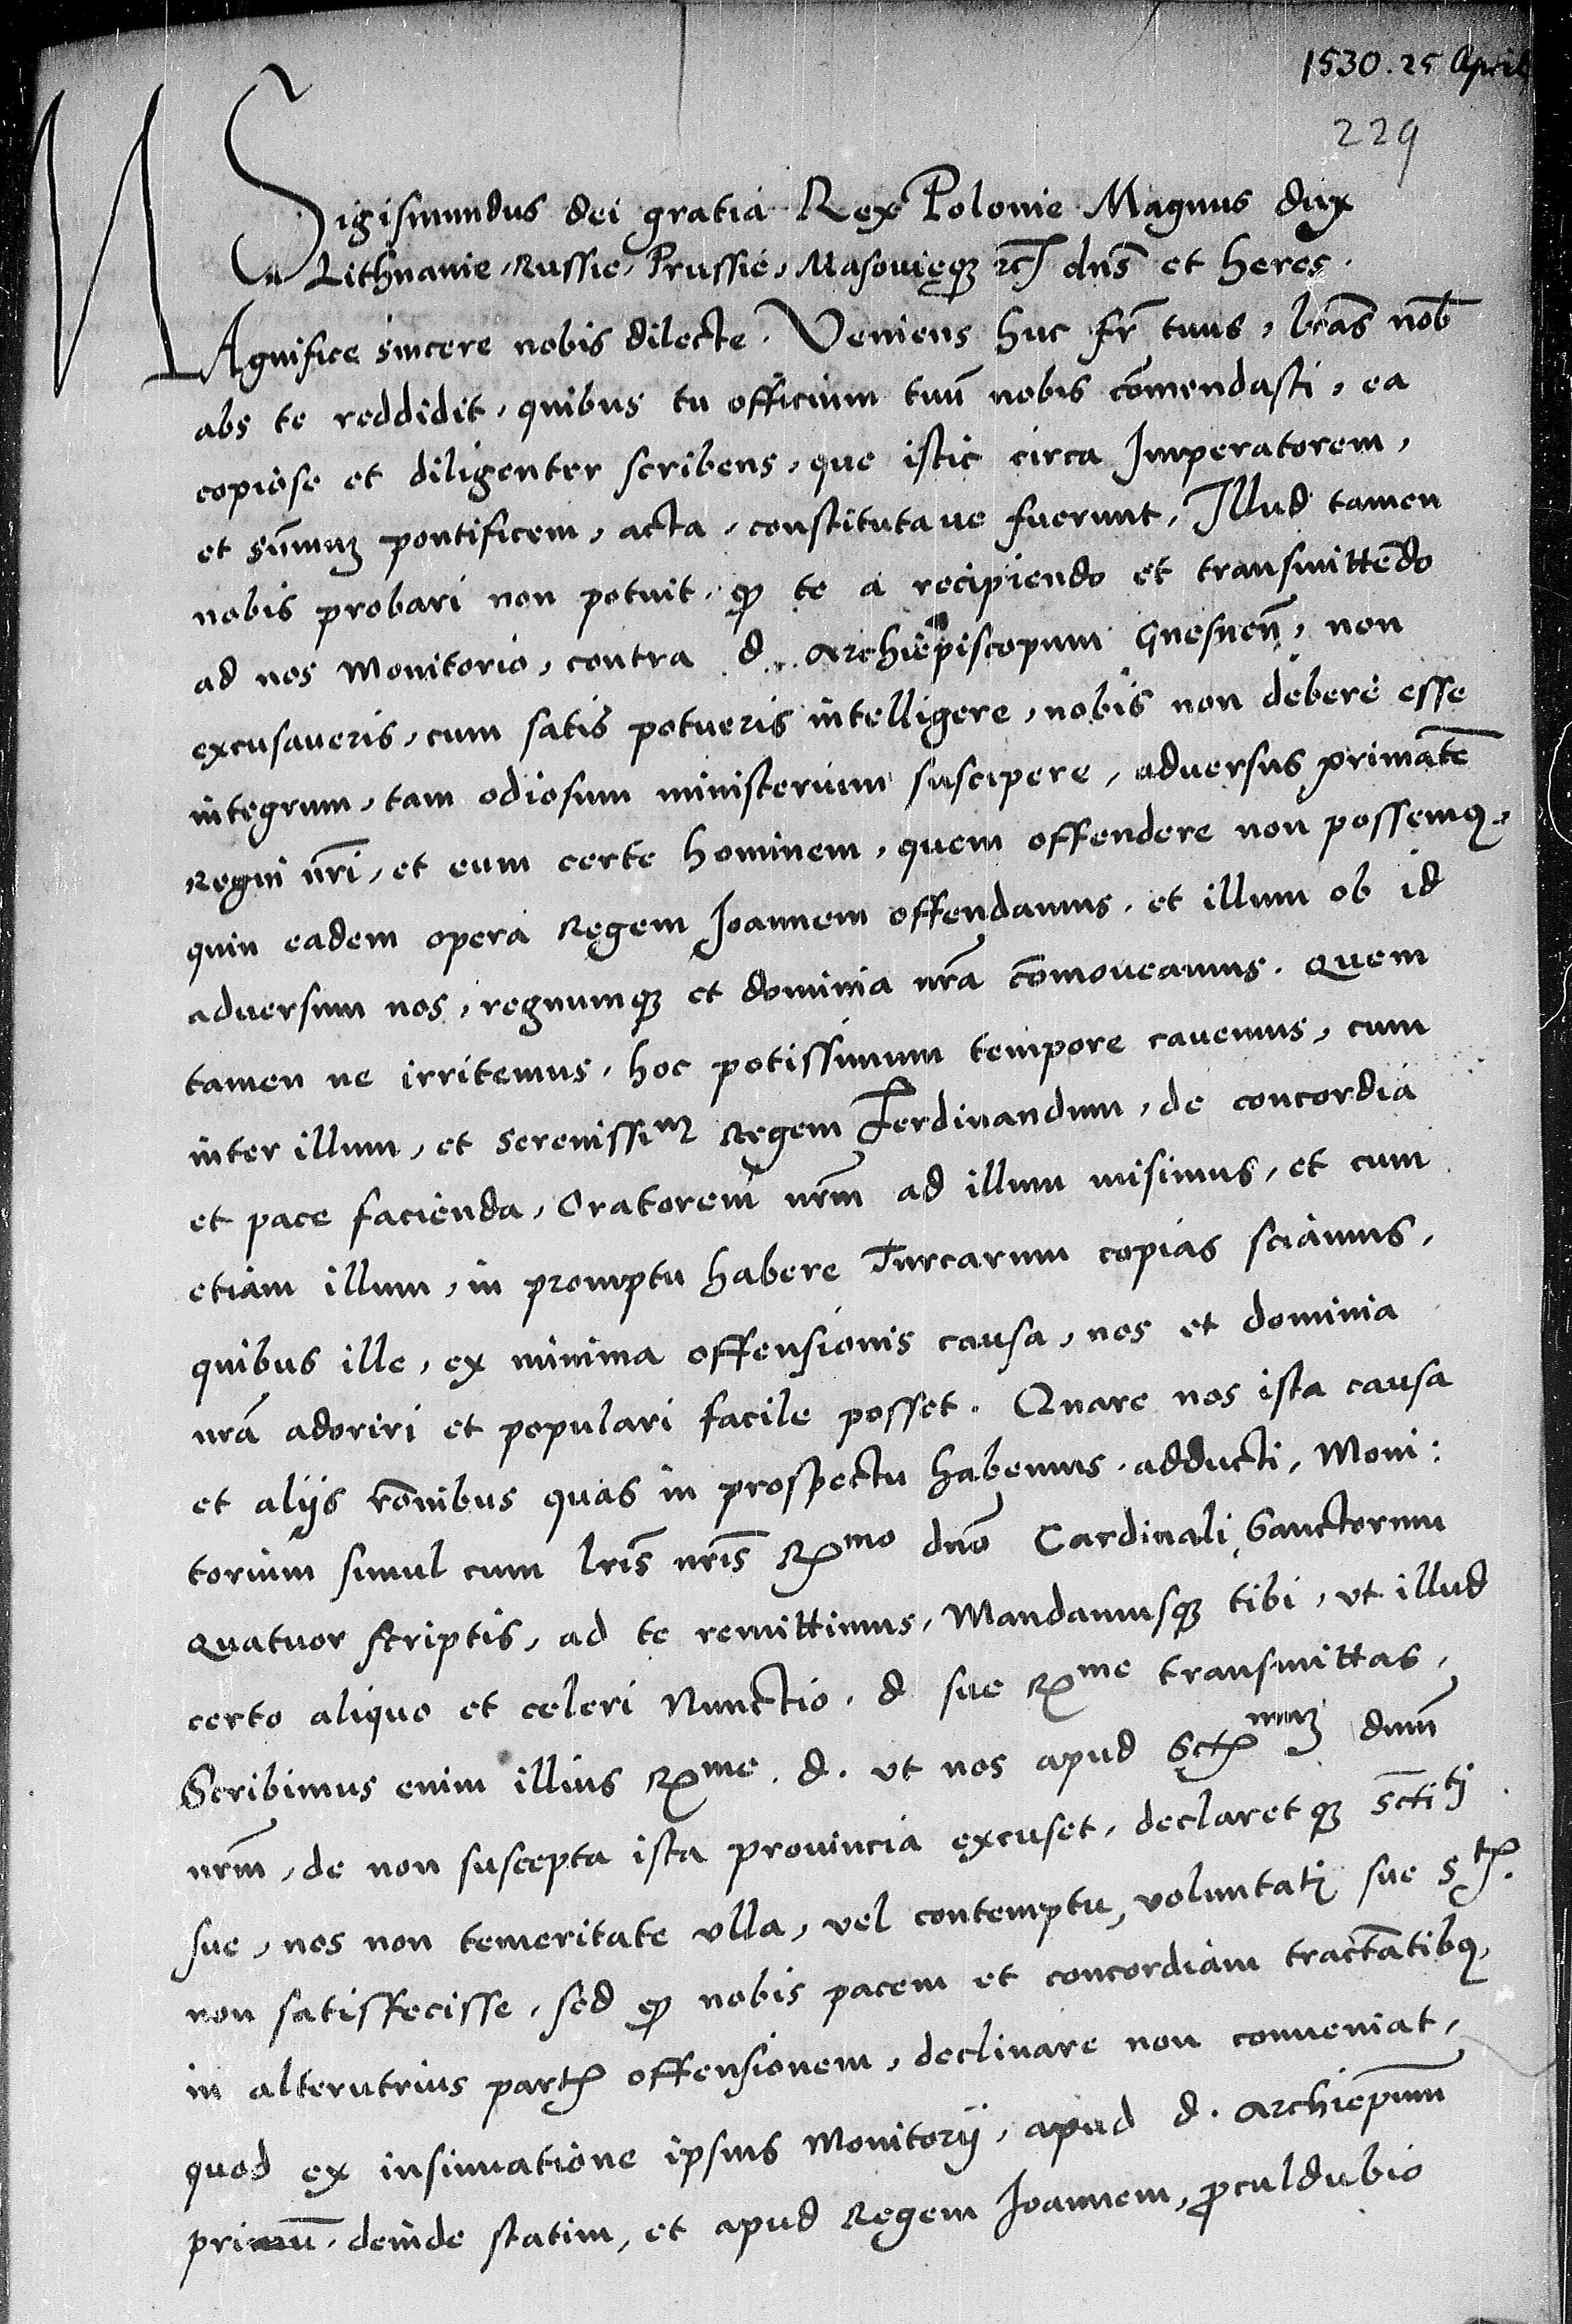 1530. 25 April
229
Sigismundus dei gratia Rex Polonie Magnus dux
Lithuanie, Russie, Prussie, Masovieqꝫ ꝛcꝭ dns̄ et heres.
MAgnifice sincere nobis dilecte. Veniens huc fr̄ tuus, lr̄as nob̄
abs te reddidit, quibus tu officium tuū nobis cōmendasti, ea
copiose et diligenter scribens, que istic circa Imperatorem,
et sūmuꝫ pontificem, acta, constitutaue fuerunt, Illud tamen
nobis probari non potuit, ꝙ te a recipiendo et transmittēdo
ad nos Monitorio, contra d. Archiepiscopum Gnesnen̄, non
excusaueris, cum satis potueris intelligere, nobis non debere esse
integrum, tam odiosum ministerium suscipere, aduersus primatē
Regni nr̄i, et eum certe hominem, quem offendere non possemꝰ,
quin eadem opera Regem Joannem offendamus, et illum ob id
aduersum nos, regnumqꝫ et dominia nr̄a cōmoueamus. Quem
tamen ne irritemus, hoc potissimum tempore cauemus, cum
inter illum, et Serenissiᵐꝫ Regem Ferdinandum, de concordia
et pace facienda, Oratorem nr̄m ad illum misimus, et cum
etiam illum, in promptu habere Turcarum copias sciamus,
quibus ille, ex minima offensionis causa, nos et dominia
nr̄a adoriri et populari facile posset. Quare nos ista causa
et alijs rōnibus quas in prospectu habemus, adducti, Moni:
torium simul cum lr̄is nr̄is Rᵐᵒ dnō Cardinali Sanctorum
Quatuor scriptis, ad te remittimus, Mandamusqꝫ tibi, vt illud
certo aliquo et celeri Nunctio, d sue Rᵐᵉ transmittas,
Scribimus enim illius Rᵐᵉ. d. vt nos apud Sctꝭᵐᵘꝫ dnm̄
nr̄m, de non suscepta ista prouincia excuset, declaretqꝫ Sctīᵗⁱ
sue, nos non temeritate vlla, vel contemptu, voluntatꝭ sue Sᵗꝭ.
non satisfecisse, sed ꝙ nobis pacem et concordiam tractātibꝰ,
in alterutrius partꝭ offensionem, declinare non conueniat,
quod ex insinuatione ipsius Monitorij, apud d. Archiepm̄um
primū, deinde statim, et apud Regem Joannem, ꝓculdubio